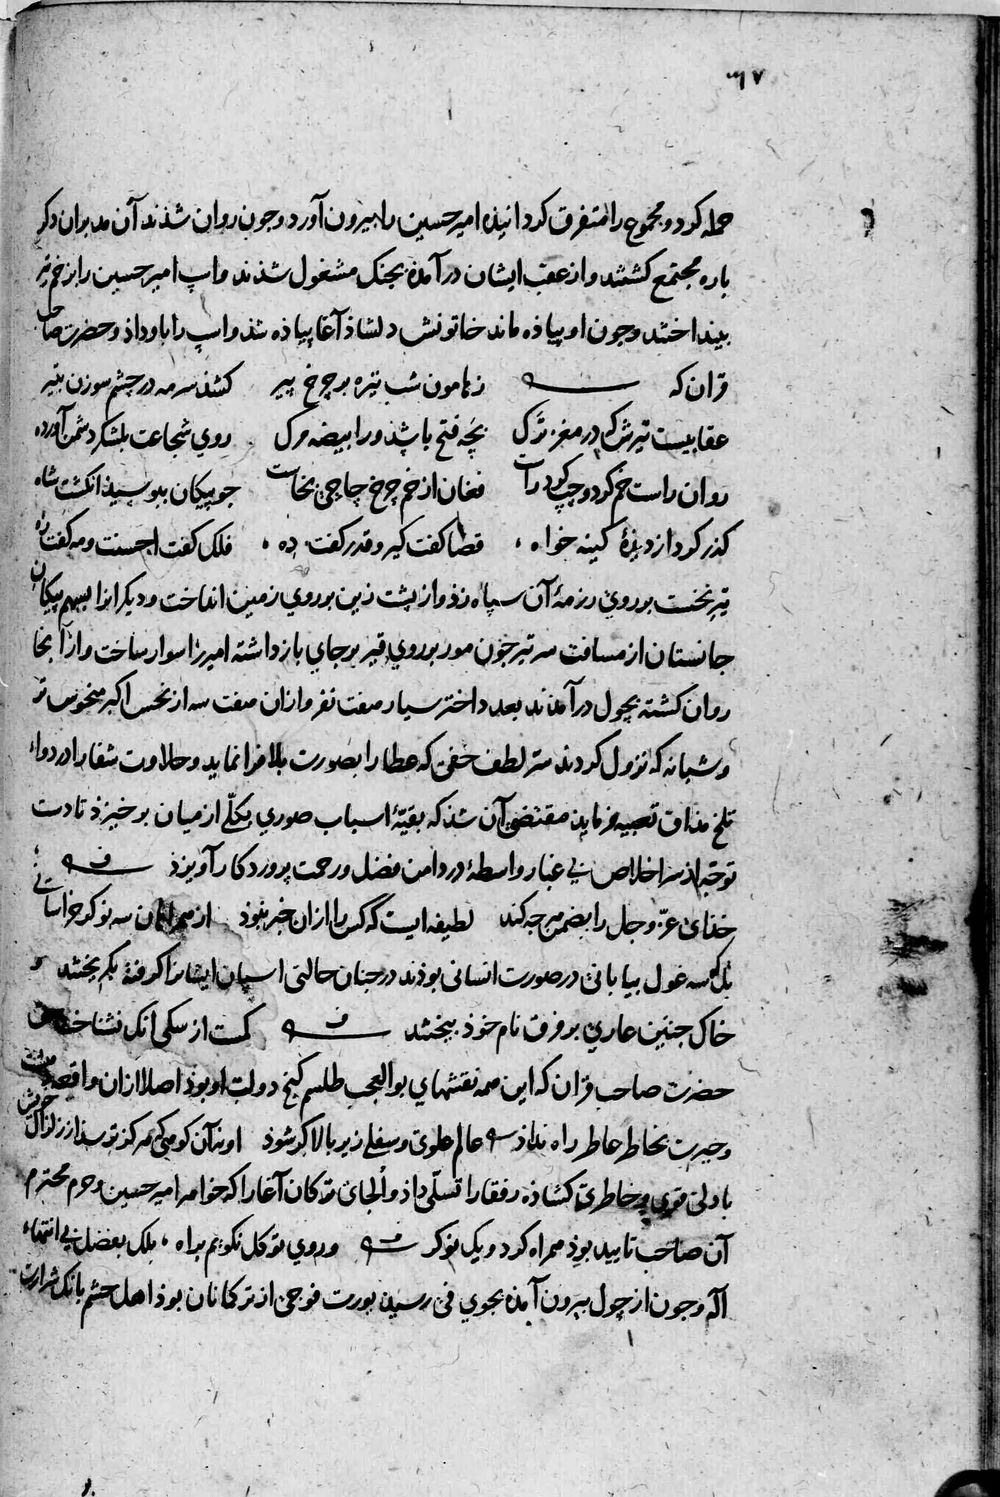 ٣١٧
حمله کرد و مجموع را متفرق کردانیذه امیر حسین را بیرون آورد و جون روان شذند آن مدبران دکر
باره مجتمع کشتند و از عقب ایشان در آمذه بجنک مشغول شذند و اسپ امیر حسین را بزخم تیر
بینداختند و جون او پیاذه ماند خاتونش دلشاذ آغا پیاذه شذ و اسپ را باو داذ و حضرت صاحب
قران که زهامون شب تیره بر چرخ پیر کشذ سرمه در چشم سوزن بتیر
عقابیست تیرش که در مغز ترک بچه فتح باشذ ورا بیضه مرک روی شجاعت بلشکر دشمن آورده
روان راست خم کرد و چپ کرد راست فغان از خم چرخ چاچی بخاست جو پیکان ببوسیذ انکشت شاه
کذر کرد از دیذۀ کینه خواه قضا کفت کیر و قدر کفت ده فلک کفت احسنت و مه کفت زه
تیر نخست بر روی رزمۀ آن سپاه زذ و از پشت زین بر روی زمین انداخت و دیکر انرا بسهم پیکان
جانستان از مسافت سه تیر جون مور بر روی قیر بر جای باز داشته امیر را سوار ساخت و از آنجا
روان کشته بجول در آمذند بعدد اختر سیار هفت نفر و ازان هفت سه از نحس اکبر منحوس تر
و شبانه که نزول کردند سر لطف خفی که عطا را بصورت بلا فرا نماید و حلاوت شفا را در دواء
تلخ مذاق تعبیه فرماید مقتضی آن شذ که بقیّۀ اسباب صوری بکلّی از میان برخیزذ تا دست
توجّه از سر اخلاص بی غبار واسطۀ در دامن فضل و رحمت پروردکار آویزذ
خذای عزّ و جل را بضمن هر جه کند لطیفه ایست که کس را ازان خبر نبوذ از همراهان سه نوکر خراسانی
بل که سه غول بیابانی در صورت انسانی بوذند در جنان حالتی اسپان ایشانرا کرفته بکریختند و
خاک جنین عاری بر فرق نام خوذ بیختند کمست از سکی انک نشناخت حق
حضرت صاحب قران که این همه نقشهای بو العجب طلسم کنج دولت او بوذ اصلا ازان واقعه دهشت
و حیرت بخاطر عاطر راه نداذ عالم علوی و سفلی زیر بالا کر شوذ او نه آن کوهی که هرکز ترسذ از زلزال خویش
با دلی قوی و خاطری کشاذه رفقا را تسلّی داذ و اُلجای ترکان آغا را که خواهر امیر حسین و حرم محترم
آن صاحب تایید بوذ همراه کرد و یک نوکر و روی توکل نکویم براه بلک بفضل بی انتهاء
اله و جون از چول بیرون آمذه بجوی فی رسید یورت فوجی از ترکمانان بوذ اهل حشم بانک شرارت